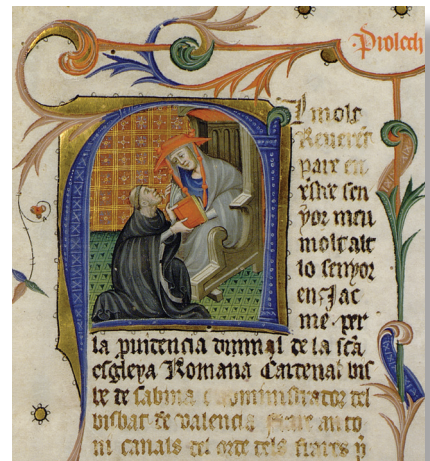 Prolech
Al molt
Reuerēt
pare en
xp̄ist sen
yor meu
molt alt
lo senyor
en Jac
me per
la puidencia diuinal de la scā
esgleya Romana Cardenal bis
be de sabina e administrator del
bisbat de valencia frare anto
ni canals del orde dels frares p̄